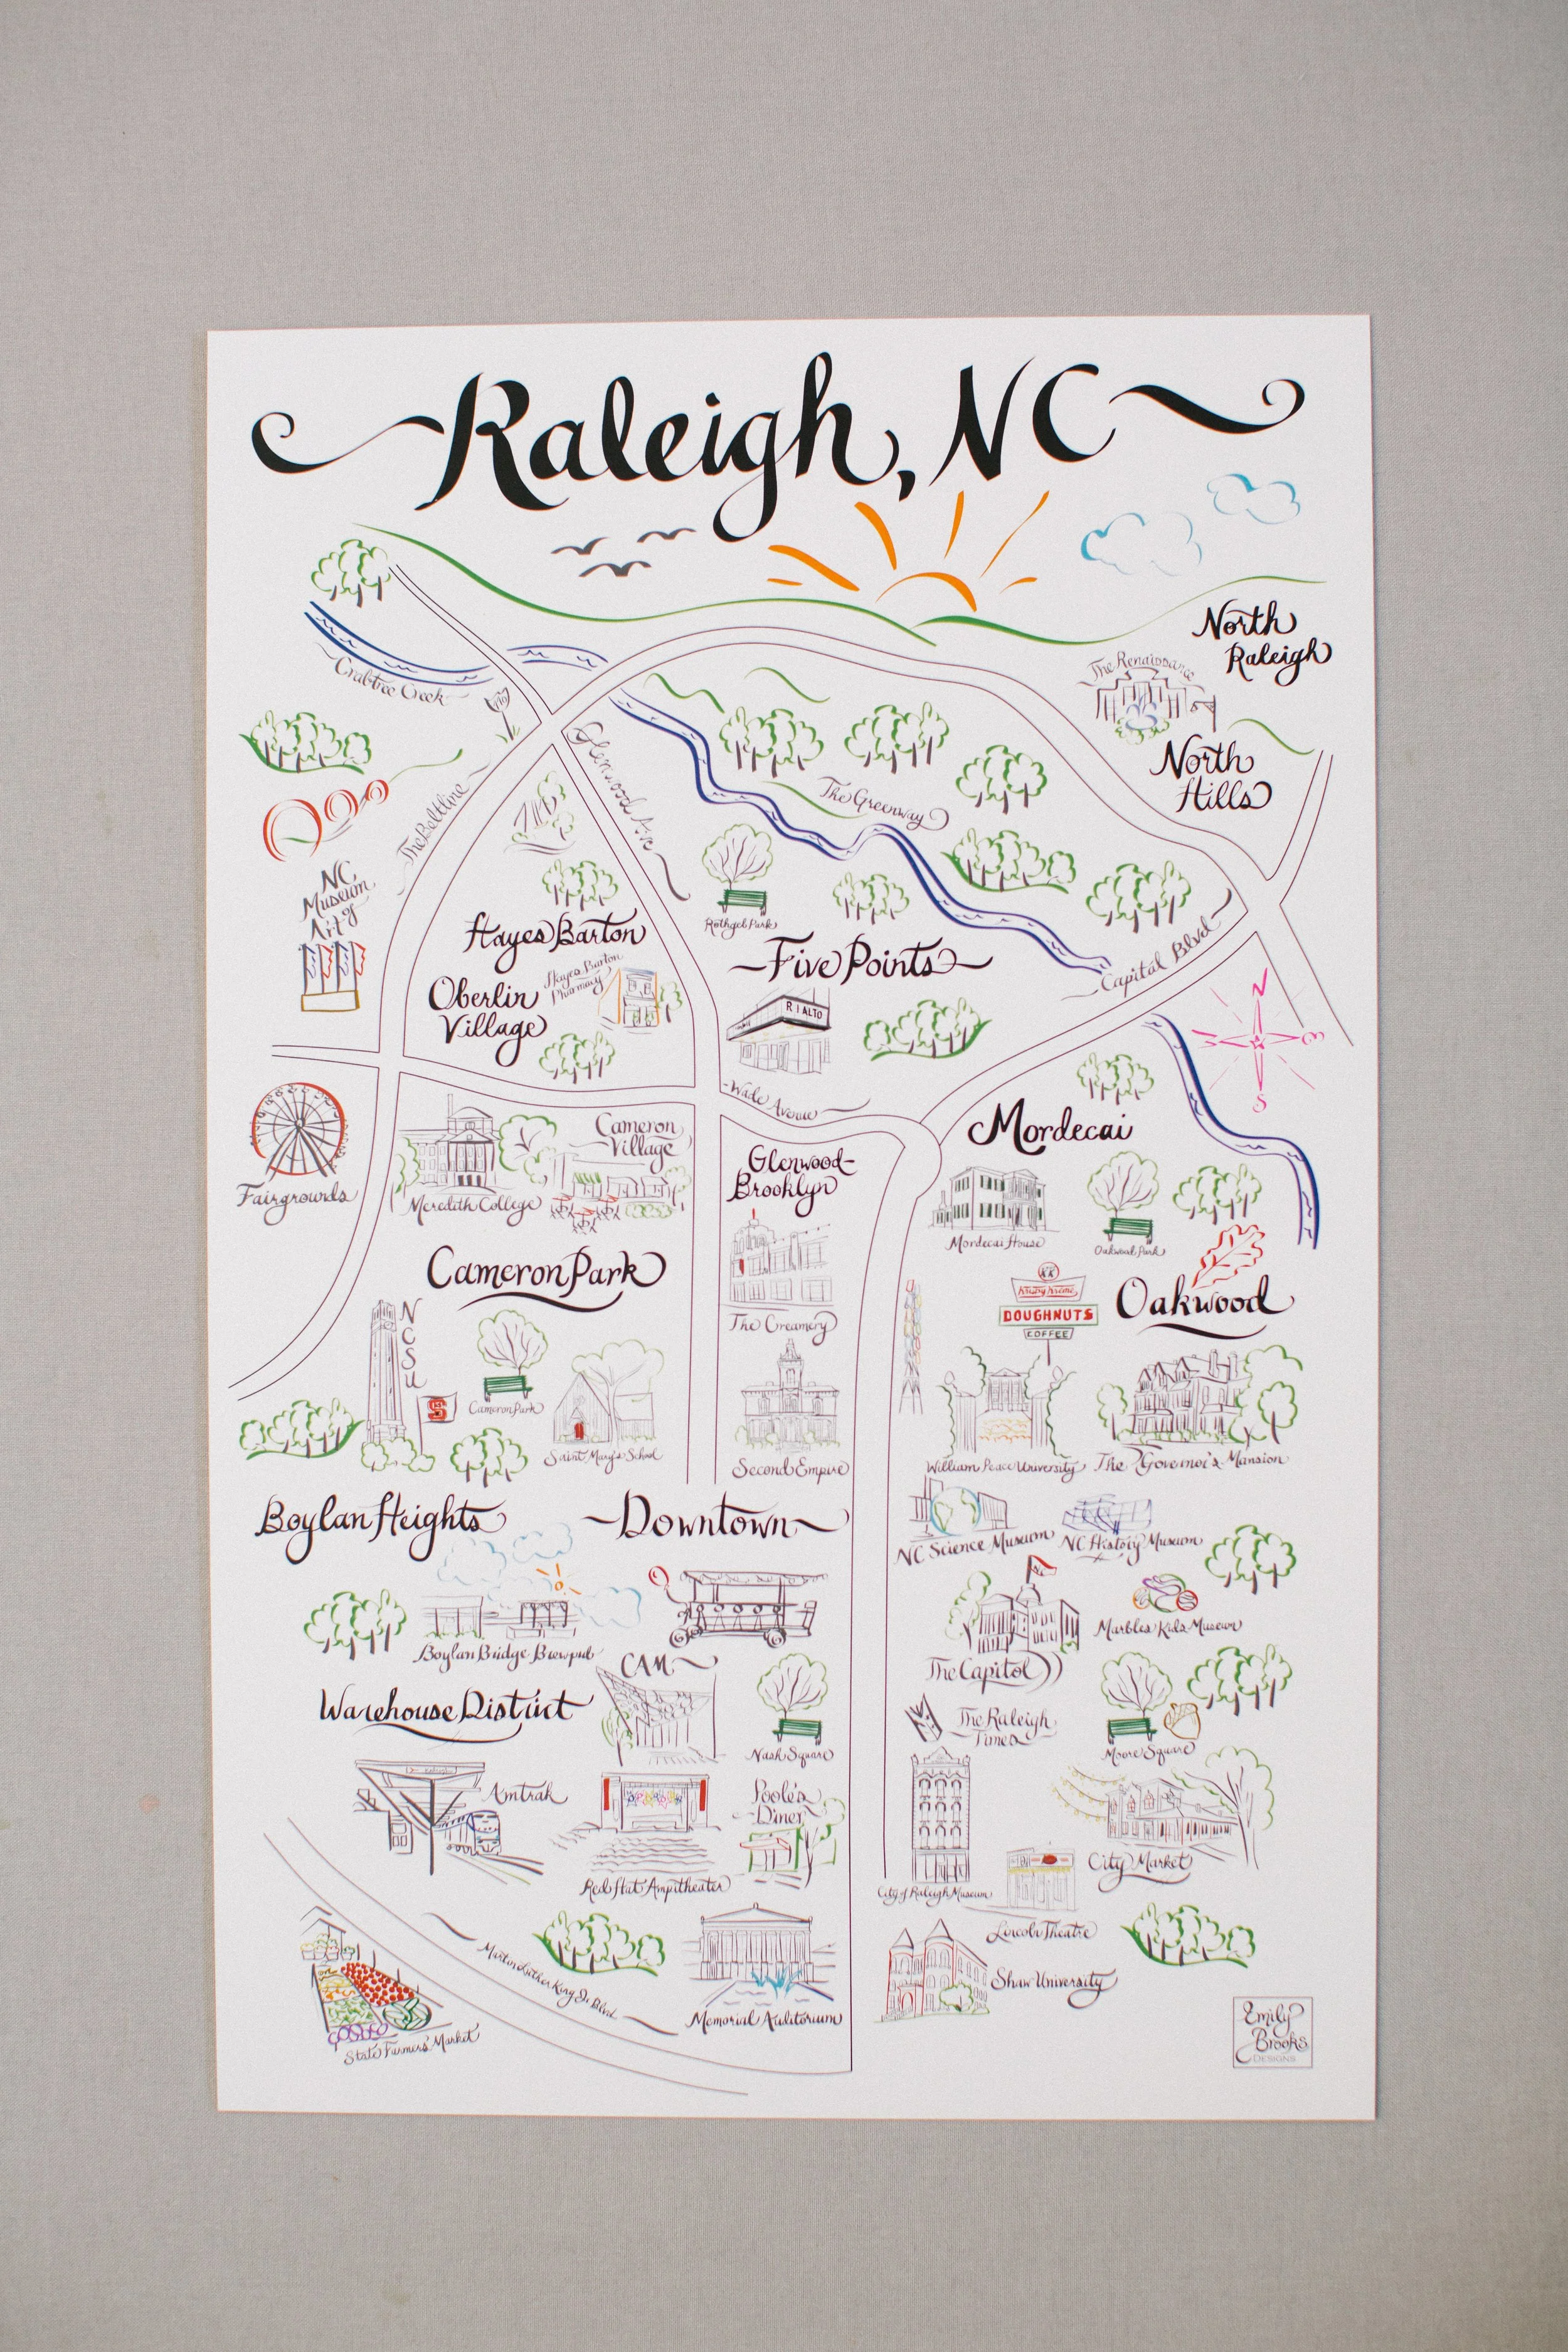 Raleigh, NC
North
Raleigh
The Renaissance
North
Hills
Crabtree Creek
Glenwood Ave
The Beltline
The Greenway
NC
Museum
of
Art
Rothgeb Park
Hayes Barton
Five Points
Capital Blvd
Oberlin
Village
Hayes Barton
Pharmacy
RIALTO
N
S
Wade Avenue
Mordecai
Fairgrounds
Meredith College
Cameron
Village
Glenwood-
Brooklyn
Mordecai House
Oakwood Park
Cameron Park
The Creamery
KK
Krispy Kreme
DOUGHNUTS
COFFEE
Oakwood
NCSU
S
Cameron Park
Saint Mary's School
Second Empire
William Peace University
The Governor's Mansion
Boylan Heights
Downtown
NC Science Museum
NC History Museum
Boylan Bridge Brewpub
CAM
The Capitol
Marbles Kids Museum
Warehouse District
Nash Square
The Raleigh
Times
Moore Square
Amtrak
Poole's
Diner
Red Hat Ampitheater
City of Raleigh Museum
City Market
Lincoln Theatre
Martin Luther King Jr. Blvd
Memorial Auditorium
Shaw University
State Farmers' Market
Emily
Brooks
DESIGNS